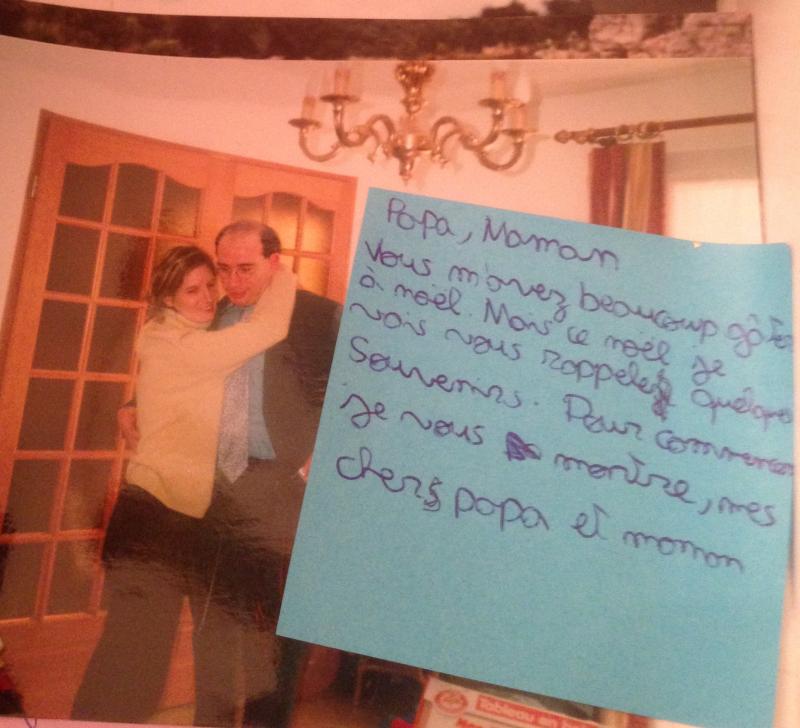 Papa, Maman
Vous m'avez beaucoup gâté
à noël. Mais ce noël je
vais vous rappeler quelque
Souvenirs. Pour commencer
je vous montre, mes
chers papa et maman
Tableau en